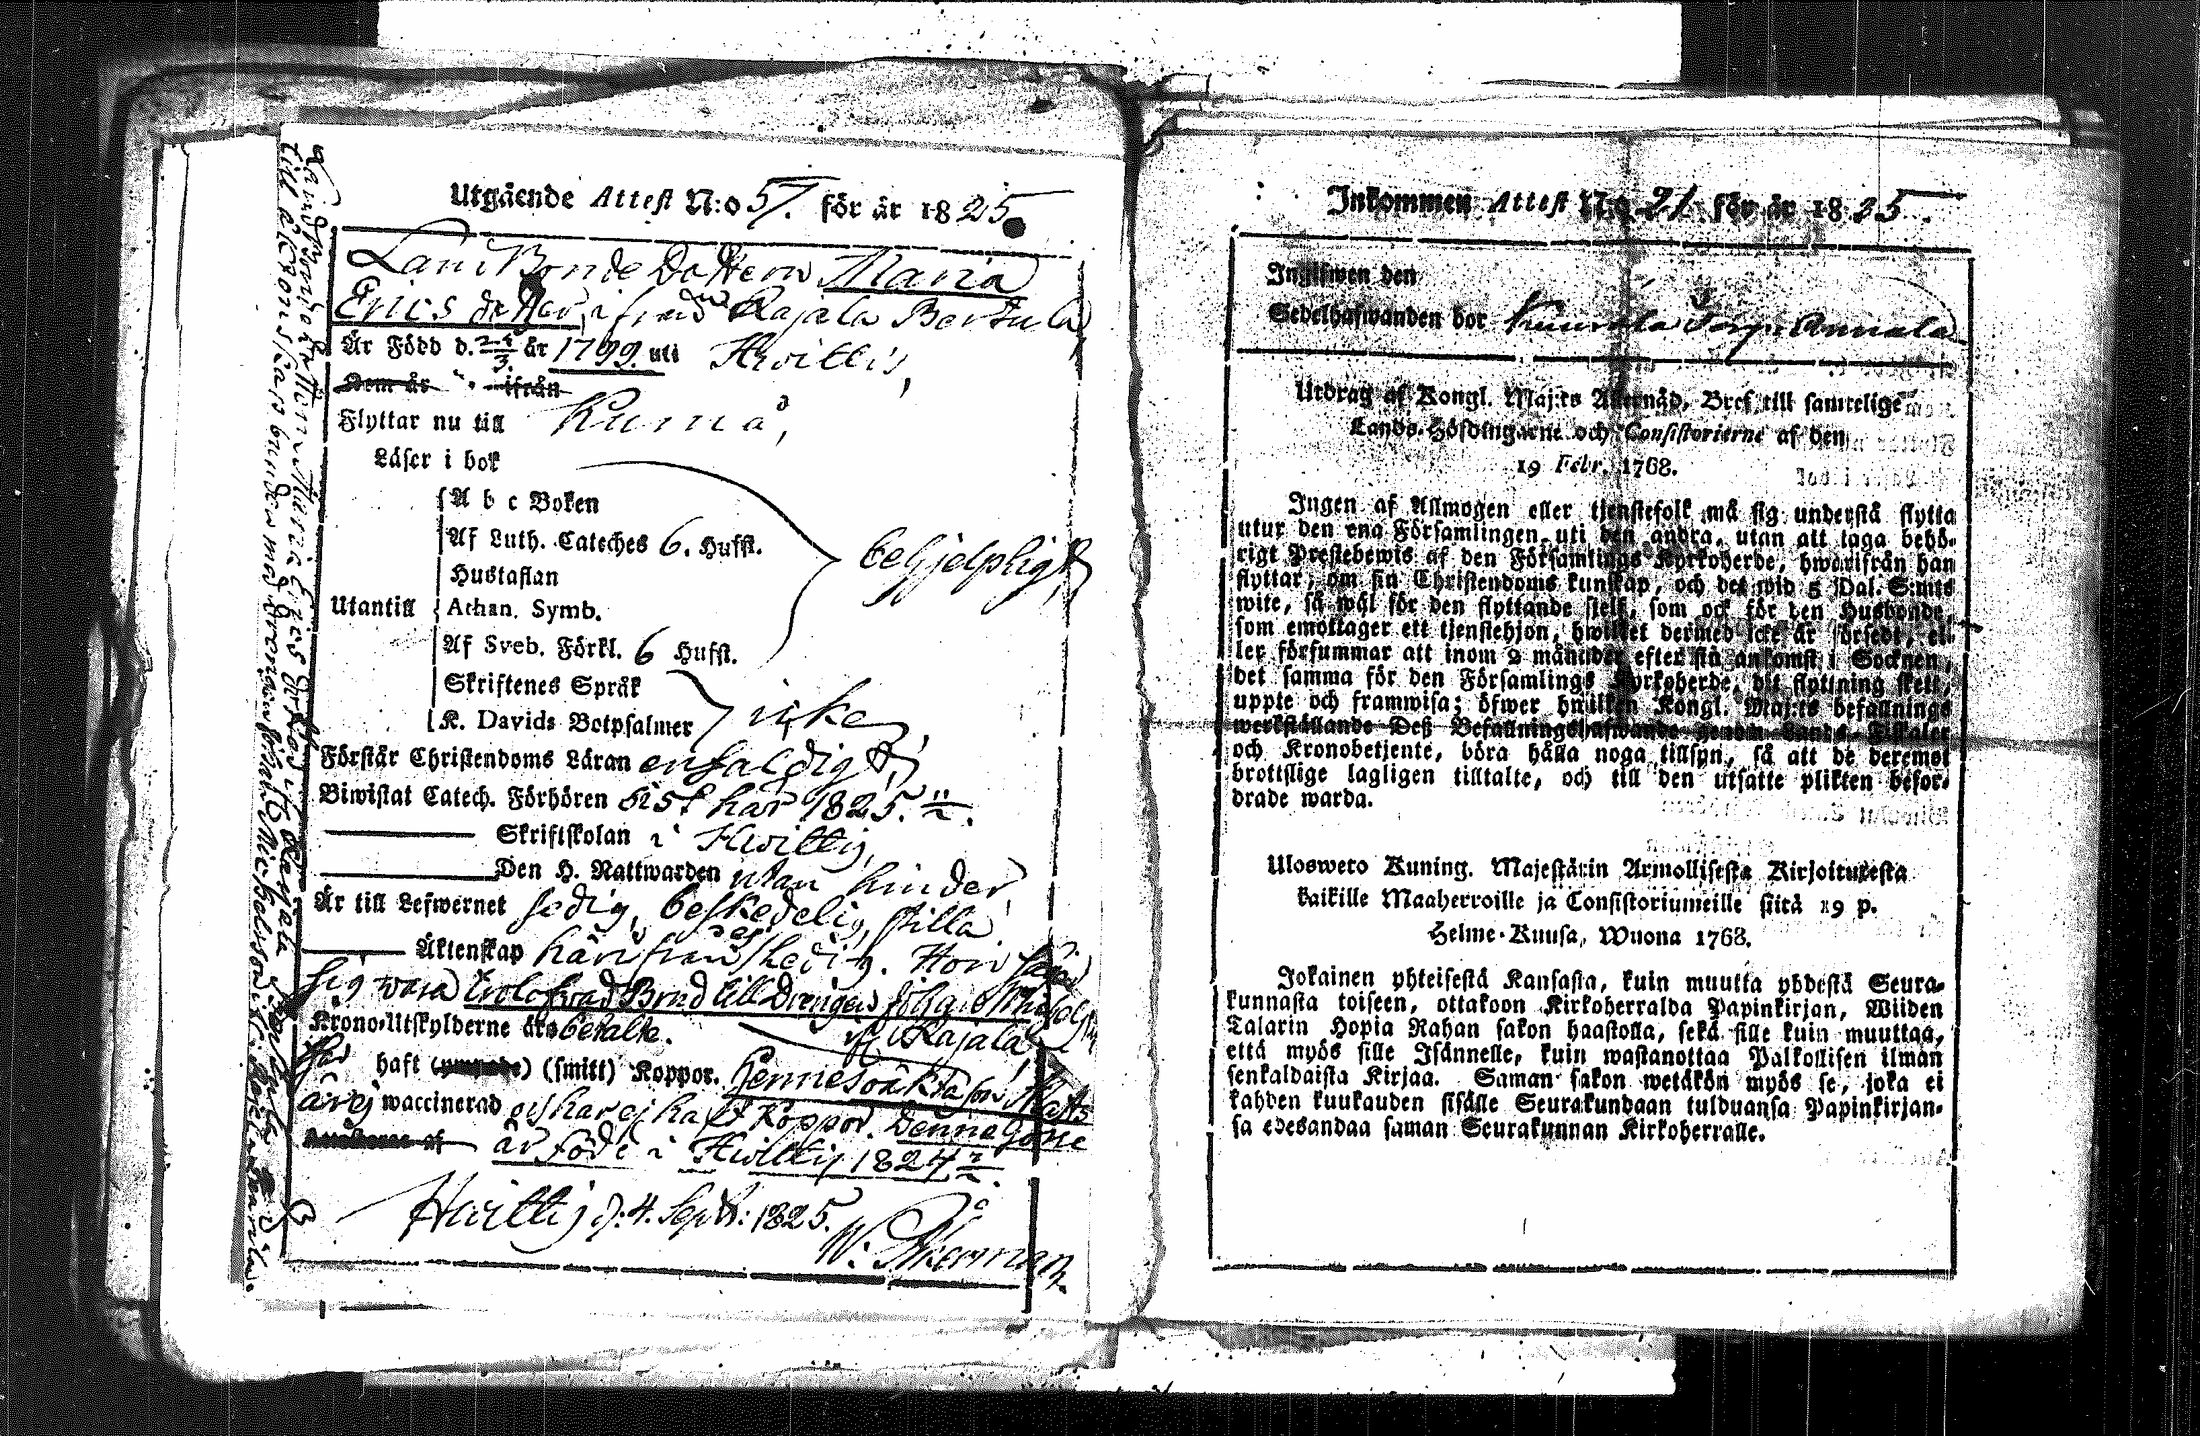 Utgående Attest N:o 57. för år 1825.
LandBonde Dottern Maria
Erics dotter, ifrån Rajala Bertula
Är Född d. 25/3. år 1799. uti Hvittis,
Dem år ifrån
Flyttar nu till Kumå,
Läser i bok
A b c Boken
Af Luth. Cateches 6. Hufst.
behjelpligt,
Hustaflan
Utantill
Athan. Symb.
Af Sveb. Förkl. 6 Hufst.
Skriftenes Språk
K. Davids Botpsalmer icke,
Förstår Christendoms Läran enfaldigt,
Biwistat Catech. Förhören sist här 1825.
Skriftskolan i Hvittis,
Den H. Nattwarden utan hinder,
Är till Lefwernet sedig, beskedelig, stilla
Äktenskap härifrån ledig. Hon säger
sig vara trolofwad Brud till Drängen Johan Michelss.
Krono-Utskylderne äro betalte.
på Rajala,
haft (ympade) (smitt) Koppor. Hennes oäkta son Mats
är ej waccinerad och har ej haft Koppor. Denne Gosse
är född i Hvittis 1824
Hvittis d. 4. Sept: 1825.
W. Åkerman.
Landbondedottern Maria Ericsdotter Rajala
till
Inkommen Attest N:o 21 för år 1825.
Inskifwen den
Sedelhafwanden bor Annala
Utdrag af Kongl. Maj:ts Allernåd. Bref till samtelige
Lands-Höfdingarne och Consistorierne af den
19 Febr. 1768.
Ingen af Allmogen eller tjenstefolk må sig understå flytta
utur den ena Församlingen uti den andra, utan att taga behö-
rigt Prestebewis af den Församlings Kyrkoherde, hwarifrån han
flyttar, om sin Christendoms kunskap, och det wid 5 Dal. S:mts
wite, så wäl för den flyttande sielf, som ock för den Husbonde,
som emottager ett tjenstehjon, hwilket dermed icke är försedt, el-
ler försummar att inom 2 månader efter sin ankomst i Socknen,
det samma för den Församlings Kyrkoherde, dit flyttning skett,
uppte och framwisa; öfwer hwilken Kongl. Maj:ts befallnings
werkställande Deß Befallningshafwande genom Lands-Fiskaler
och Kronobetjente, böra hålla noga tillsyn, så att de deremot
brottslige lagligen tilltalte, och till den utsatte plikten befor-
drade warda.
Ulosweto Kuning. Majestärin Armollisesta Kirjoituxesta
kaikille Maaherroille ja Consistoriumeille siitä 19 p.
Helme-Kuusa, Wuona 1768.
Jokainen yhteisestä Kansasta, kuin muutta yhdestä Seura-
kunnasta toiseen, ottakoon Kirkoherralda Papinkirjan, Wiiden
Talarin Hopia Rahan sakon haastolla, sekä sille kuin muuttaa,
että myös sille Isännelle, kuin wastanottaa Palkollisen ilman
senkaldaista Kirjaa. Saman sakon wetäkön myös se, joka ei
kahden kuukauden sisälle Seurakundaan tulduansa Papinkirjan-
sa edesandaa saman Seurakunnan Kirkoherralle.